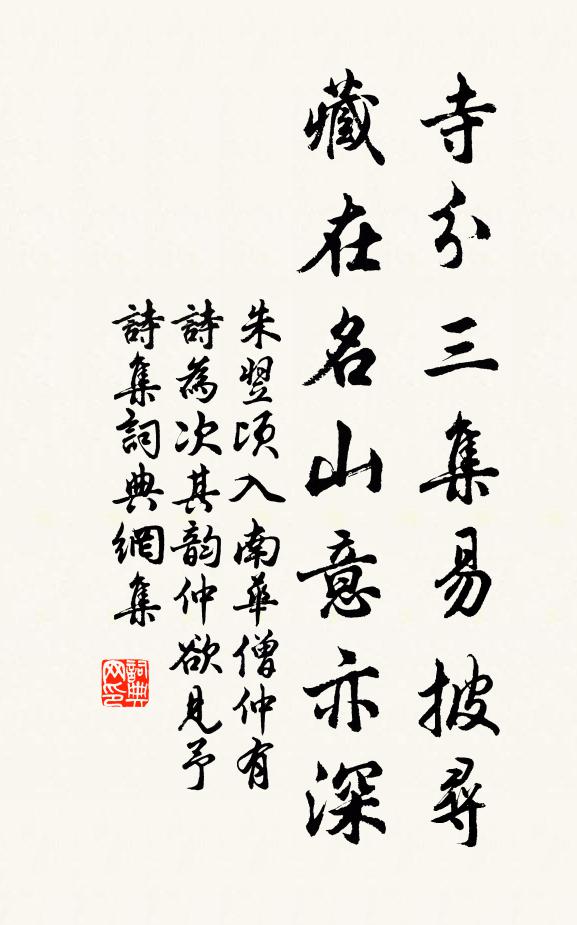 寺分三集易披尋
藏在名山意亦深
朱翌頃入南華僧仲有
詩為次其韵仲欲見予
詩集詞典網集
詞典
网印